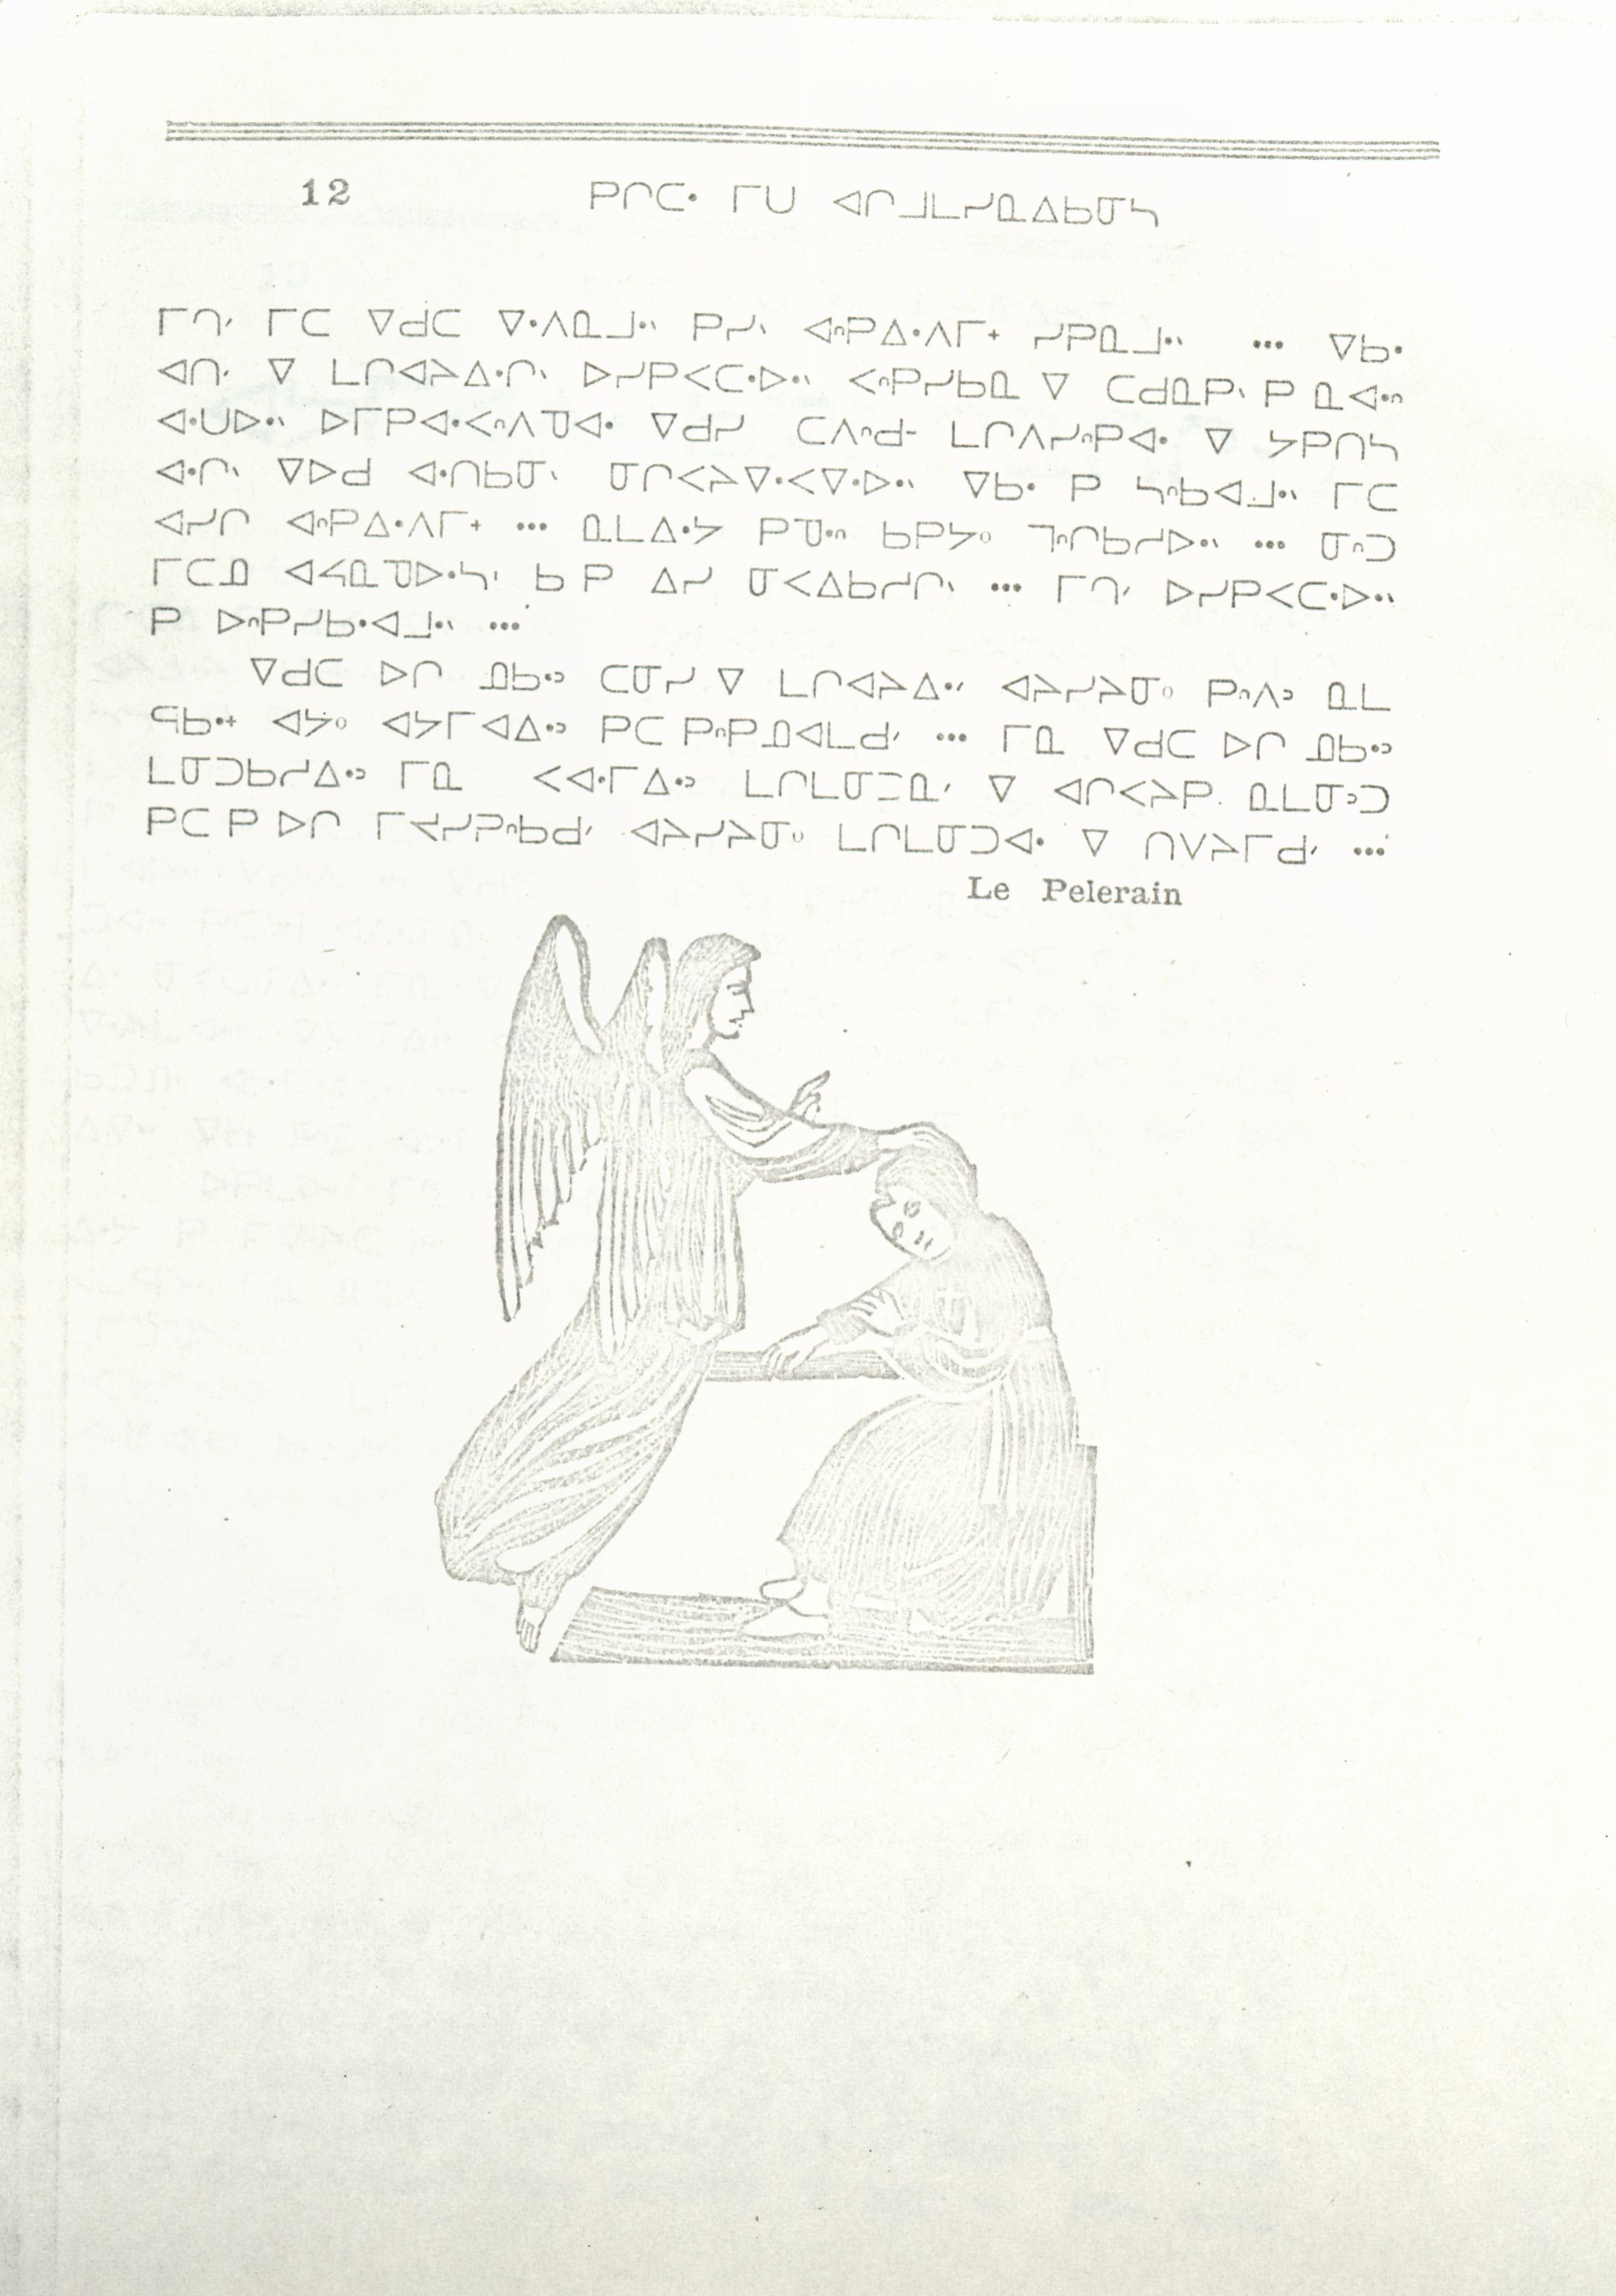 12 ᑭᒋᑕᐧ ᒥᑌ ᐊᒋᒧᒪᓯᓇᐃᑲᓂᓴ
ᒥᒉᐟ ᒥᑕ ᐁᑯᑕ ᐁᐧᐱᓇᒧᐧᐠ ᑭᓯᐠ ᐊᐢᑭᐃᐧᐱᒥᐩ ᓯᑭᓇᒧᐧᐠ ... ᐁᑲᐧ
ᐊᑎᐟ ᐁ ᒪᒋᐊᔨᐃᐧᒋᐠ ᐅᓯᑭᐸᑕᐧᐅᐧᐠ ᐸᐢᑭᓯᑲᓇ ᐁ ᑕᑯᓇᑭᐠ ᑭ ᓇᐊᐧᐢ
ᐊᐧᑌᐅᐧᐠ ᐅᒥᑭᐊᐧᐸᐢᐱᑯᐊᐧ ᐁᑯᓯ ᑕᐱᐢᑯᐨ ᒪᒋᐱᓯᐢᑭᐊᐧ ᐁ ᔦᑭᑎᓴ
ᐊᐧᒋᐠ ᐁᐅᑯ ᐊᐧᑎᑲᓂᐠ ᓂᒋᐸᔨᐁᐧᐸᐁᐧᐅᐧᐠ ᐁᑲᐧ ᑭ ᓴᐢᑲᐊᒧᐧᐠ ᒥᑕ
ᐊᓯᒋ ᐊᐢᑭᐃᐧᐱᒥᐩ ... ᓇᒪᐃᐧᔭ ᑭᓄᐧᐢ ᑲᑭᔭᐤ ᒣᐢᒋᑲᓱᐅᐧᐠ ... ᓂᐢᑐ
ᒥᑕᓄ ᐊᔭᓇᑯᐅᐧᓴᐠ ᑲ ᑭ ᐃᓯ ᓂᐸᐃᑲᓱᒋᐠ ... ᒥᒉᐟ ᐅᓯᑭᐸᑕᐧᐅᐧᐠ
ᑭ ᐅᐢᑭᓯᑲᐧᐊᒧᐧᐠ ...
ᐁᑯᑕ ᐅᒋ ᓄᑲᐧᐣ ᑕᓂᓯ ᐁ ᒪᒋᐊᔨᐃᐧᐟ ᐊᔨᓯᔨᓂᐤ ᑭᐢᐱᐣ ᓇᒪ
ᑫᑲᐧᐩ ᐊᔭᐤ ᐊᔭᒥᐊᐃᐧᐣ ᑭᑕ ᑭᐢᑭᓄᐊᒪᑯᐟ ... ᒥᓇ ᐁᑯᑕ ᐅᒋ ᓄᑲᐧᐣ
ᒪᓂᑐᑲᓱᐃᐧᐣ ᒥᓇ ᐸᐊᐧᒥᐃᐧᐣ ᒪᒋᒪᓂᑐᓇᐟ ᐁ ᐊᒋᐸᔨᑭ. ᓇᒪᓂᐣᑐ
ᑭᑕ ᑭ ᐅᒋ ᒥᔪᓯᔨᐢᑲᑯᐟ ᐊᔨᓯᔨᓂᐤ ᒪᒋᒪᓂᑐᐊᐧ ᐁ ᑎᐯᔨᒥᑯᐟ ...
Le Pelerain